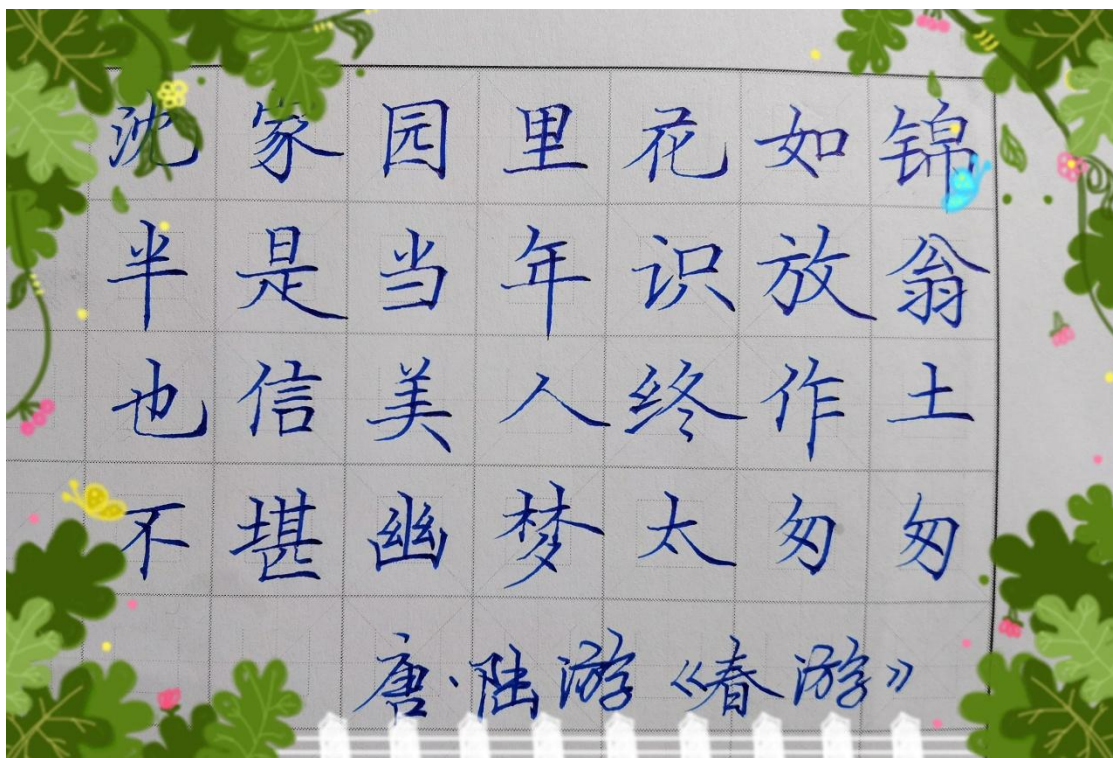 沈家园里花如锦
半是当年识放翁
也信美人终作土
不堪幽梦太匆匆
唐·陆游《春游》